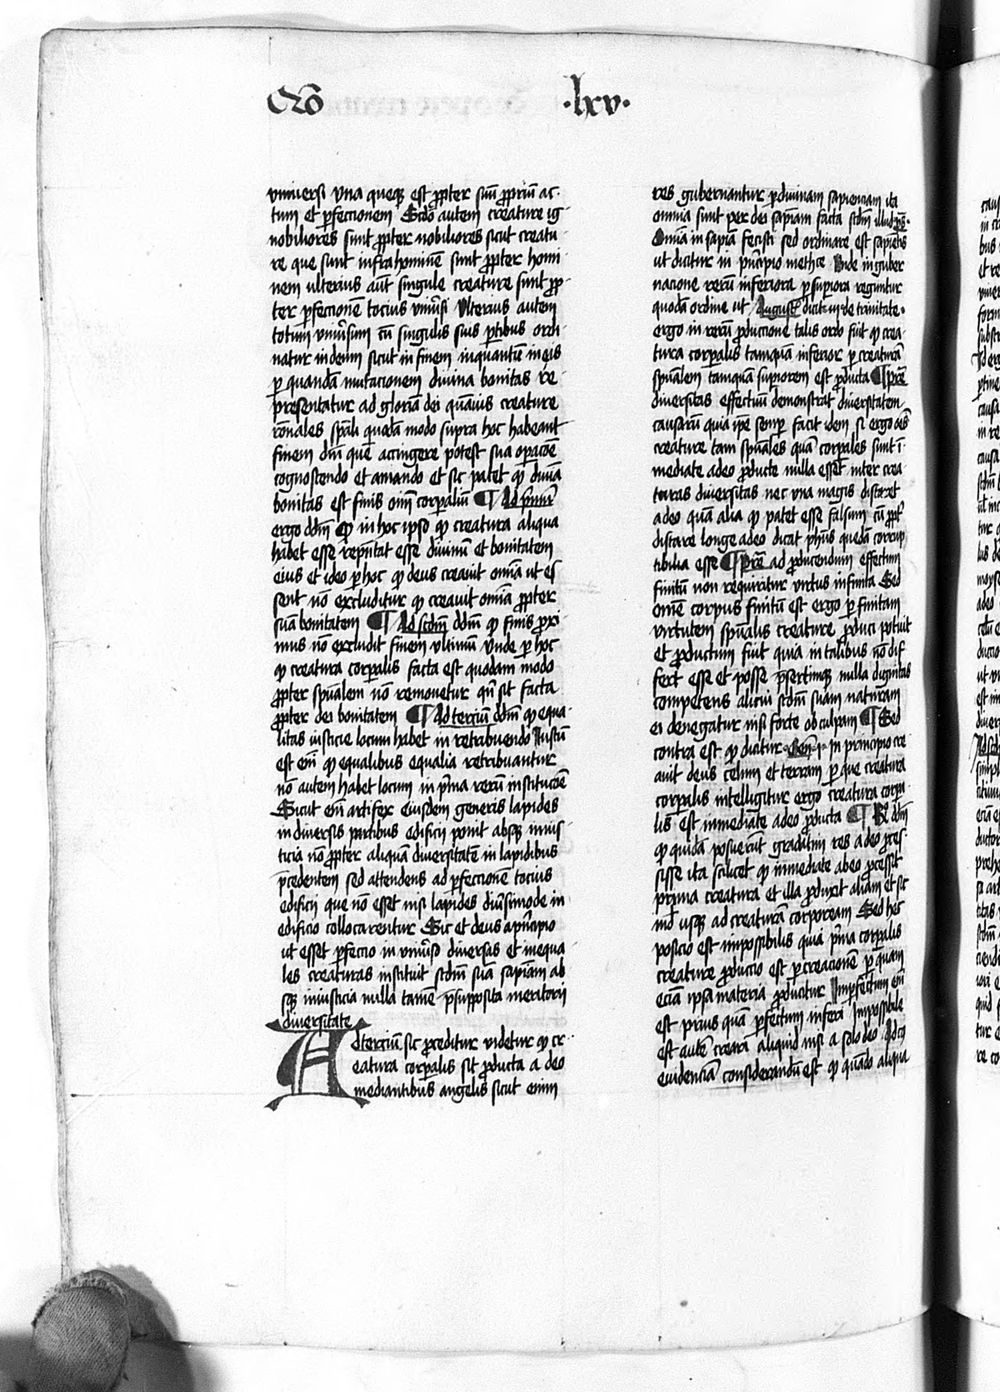 Qo̅ .lxv.
vniuersi vna queqʒ est ꝓpter suu̅ ꝓpriu̅ ac
tum et ꝑfectionem Scd̅o autem creature ig
nobiliores sunt ꝓpter nobiliores sicut creatu
re que sunt infra homine̅ sunt ꝓpter homi
nem vlterius aut̅ singule creature sunt ꝓp
ter ꝑfectione̅ tocius vniu̅si Vlterius autem
totum vniu̅sum cu̅ singulis suis ꝑtibus ordi
natur in deum sicut in finem inquantu̅ in eis
ꝑ quanda̅ imitacionem diuina bonitas re
p̅resentatur ad gloria̅ dei qua̅uis creature
ro̅nales sp̅ali quoda̅ modo supra hoc habeant
finem deu̅ que̅ attingere potest sua oꝑac̅oe̅
cognoscendo et amando et sic patet ꝙ diui̅a
bonitas est finis om̅i̅ corꝑaliu̅ ¶ Ad p̅mu̅
ergo dd̅m ꝙ in hoc ip̅so ꝙ creatura aliqua
habet esse rep̅ntat esse diuinu̅ et bonitatem
eius et ideo ꝑ hoc ꝙ deus creauit omi̅a ut es
sent no̅ excluditur ꝙ creauit omi̅a ꝓpter
sua̅ bonitatem ¶ Ad scd̅m dd̅m ꝙ finis ꝓxi
mus no̅ excludit finem vltimu̅ Vnde ꝑ hoc
ꝙ creatura corꝑalis facta est quodam modo
ꝓpter spu̅alem no̅ remouetur qn̅ sit facta
ꝓpter dei bonitatem ¶ Ad terciu̅ dd̅m ꝙ equa
litas iusticie locum habet in retribuendo Iustu̅
est em̅ ꝙ equalibus equalia retribuantur
no̅ autem habet locum in p̅ma reru̅ institucio̅e
Sicut em̅ artifex eiusdem generis lapides
in diuersis partibus edificij ponit absqʒ inius
ticia no̅ ꝓpter aliqua̅ diuersitate̅ in lapidibus
p̅cedentem sed attendens ad ꝑfectione̅ tocius
edificij que no̅ esset nisi lapides diu̅simode in
edificio collocarentur Sic et deus a pn̅cipio
ut esset ꝑfectio in vniu̅so diuersas et inequa
les creaturas instituit scd̅m sua̅ sapi̅am ab
sqʒ iniusticia nulla tame̅ p̅supposita meritorij
diuersitate
Ad terciu̅ sic ꝓceditur videtur ꝙ cr
eatura corꝑalis sit ꝓducta a deo
mediantibus angelis sicut enim
res gubernantur ꝑ diuinam sapienciam ita
omnia sunt per dei sapi̅am facta scd̅m illud ps̅.
Omi̅a in sapi̅a fecisti sed ordinare est sapie̅tis
ut dicitur in pn̅cipio meth̅ce Vnde in guber
nacione reru̅ inferiora ꝑ suꝑiora reguntur
quoda̅ ordine ut August̅ dicit iii de trinitate.
ergo in reru̅ ꝓductione talis ordo fuit ꝙ crea
tura corꝑalis tamqua̅ inferior ꝑ creatura̅
spu̅alem tamqua̅ suꝑiorem est ꝓducta ¶ p̅re̅
diuersitas effectuu̅ demonstrat diuersitatem
causaru̅ quia ide̅ semꝑ facit idem si ergo oe̅s
creature tam spu̅ales qua̅ corꝑales sunt i̅
mediate a deo ꝓducte nulla esset inter crea
turas diuersitas nec vna magis distaret
a deo qua̅ alia ꝙ patet esse falsum cu̅ ꝓpt̅
distare longe a deo dicat ph̅us queda̅ corrup
tibilia esse ¶ p̅re̅ ad ꝓducendum effectum
finitu̅ non requiritur virtus infinita Sed
om̅e corpus finitu̅ est ergo ꝑ finitam
virtutem spu̅alis creature ꝓduci potuit
et ꝓductum fuit quia in talibus no̅ dif
fert esse et posse p̅sertimqʒ nulla dignitas
competens alicui scd̅m suam naturam
ei denegatur nisi forte ob culpam ¶ Sed
contra est ꝙ dicitur Gen̅. i. In principio cre
auit deus celum et terram ꝑ que creatura
corꝑalis intelligitur ergo creatura corꝑa
lis est inmediate a deo ꝓducta ¶ R̅ dd̅m
ꝙ quida̅ posueru̅t gradatim res a deo ꝓces
sisse ita scilicet ꝙ inmediate ab eo ꝓcessit
prima creatura et illa ꝓduxit aliam et sic
in̅d vsqʒ ad creatura̅ corpoream Sed hec
posicio est impossibilis quia p̅ma corꝑalis
creature ꝓductio est ꝑ creacione̅ ꝑ quam
ecia̅ ipsa materia ꝓducitur Imꝑfectum em̅
est prius qua̅ ꝑfectum in fieri Impossibile
est aute̅ creari aliquid nisi a solo deo Ad cꝰ
euidencia̅ considerandu̅ est ꝙ qua̅do aliqua